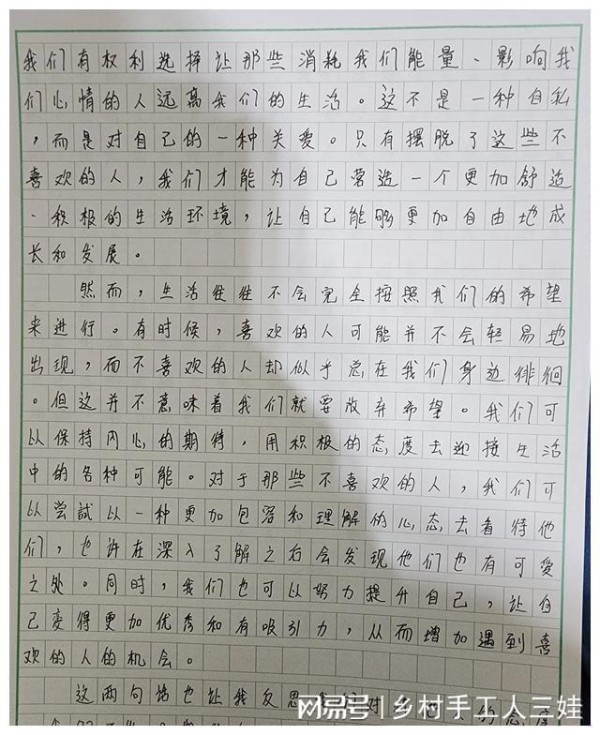 我们有权利选择让那些消耗我们能量、影响我
们心情的人远离我们的生活。这不是一种自私
，而是对自己的一种关爱。只有摆脱了这些不
喜欢的人，我们才能为自己营造一个更加舒适
、积极的生活环境，让自己能够更加自由地成
长和发展。
然而，生活往往不会完全按照我们的希望
来进行。有时候，喜欢的人可能并不会轻易地
出现，而不喜欢的人却似乎总在我们身边徘徊
。但这并不意味着我们就要放弃希望。我们可
以保持内心的期待，用积极的态度去迎接生活
中的各种可能。对于那些不喜欢的人，我们可
以尝试以一种更加包容和理解的心态去看待他
们，也许在深入了解之后会发现他们也有可爱
之处。同时，我们也可以努力提升自己，让自
己变得更加优秀和有吸引力，从而增加遇到喜
欢的人的机会。
这两句话也让我反思对的态度
网易号 | 乡村手工人三娃